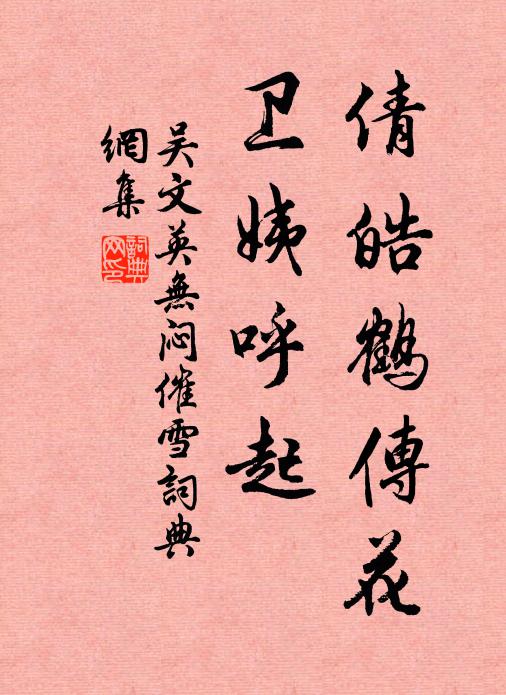 倩皓鹤傳花
卫姨呼起
吴文英無闷催雪詞典
網集
詞典
网印